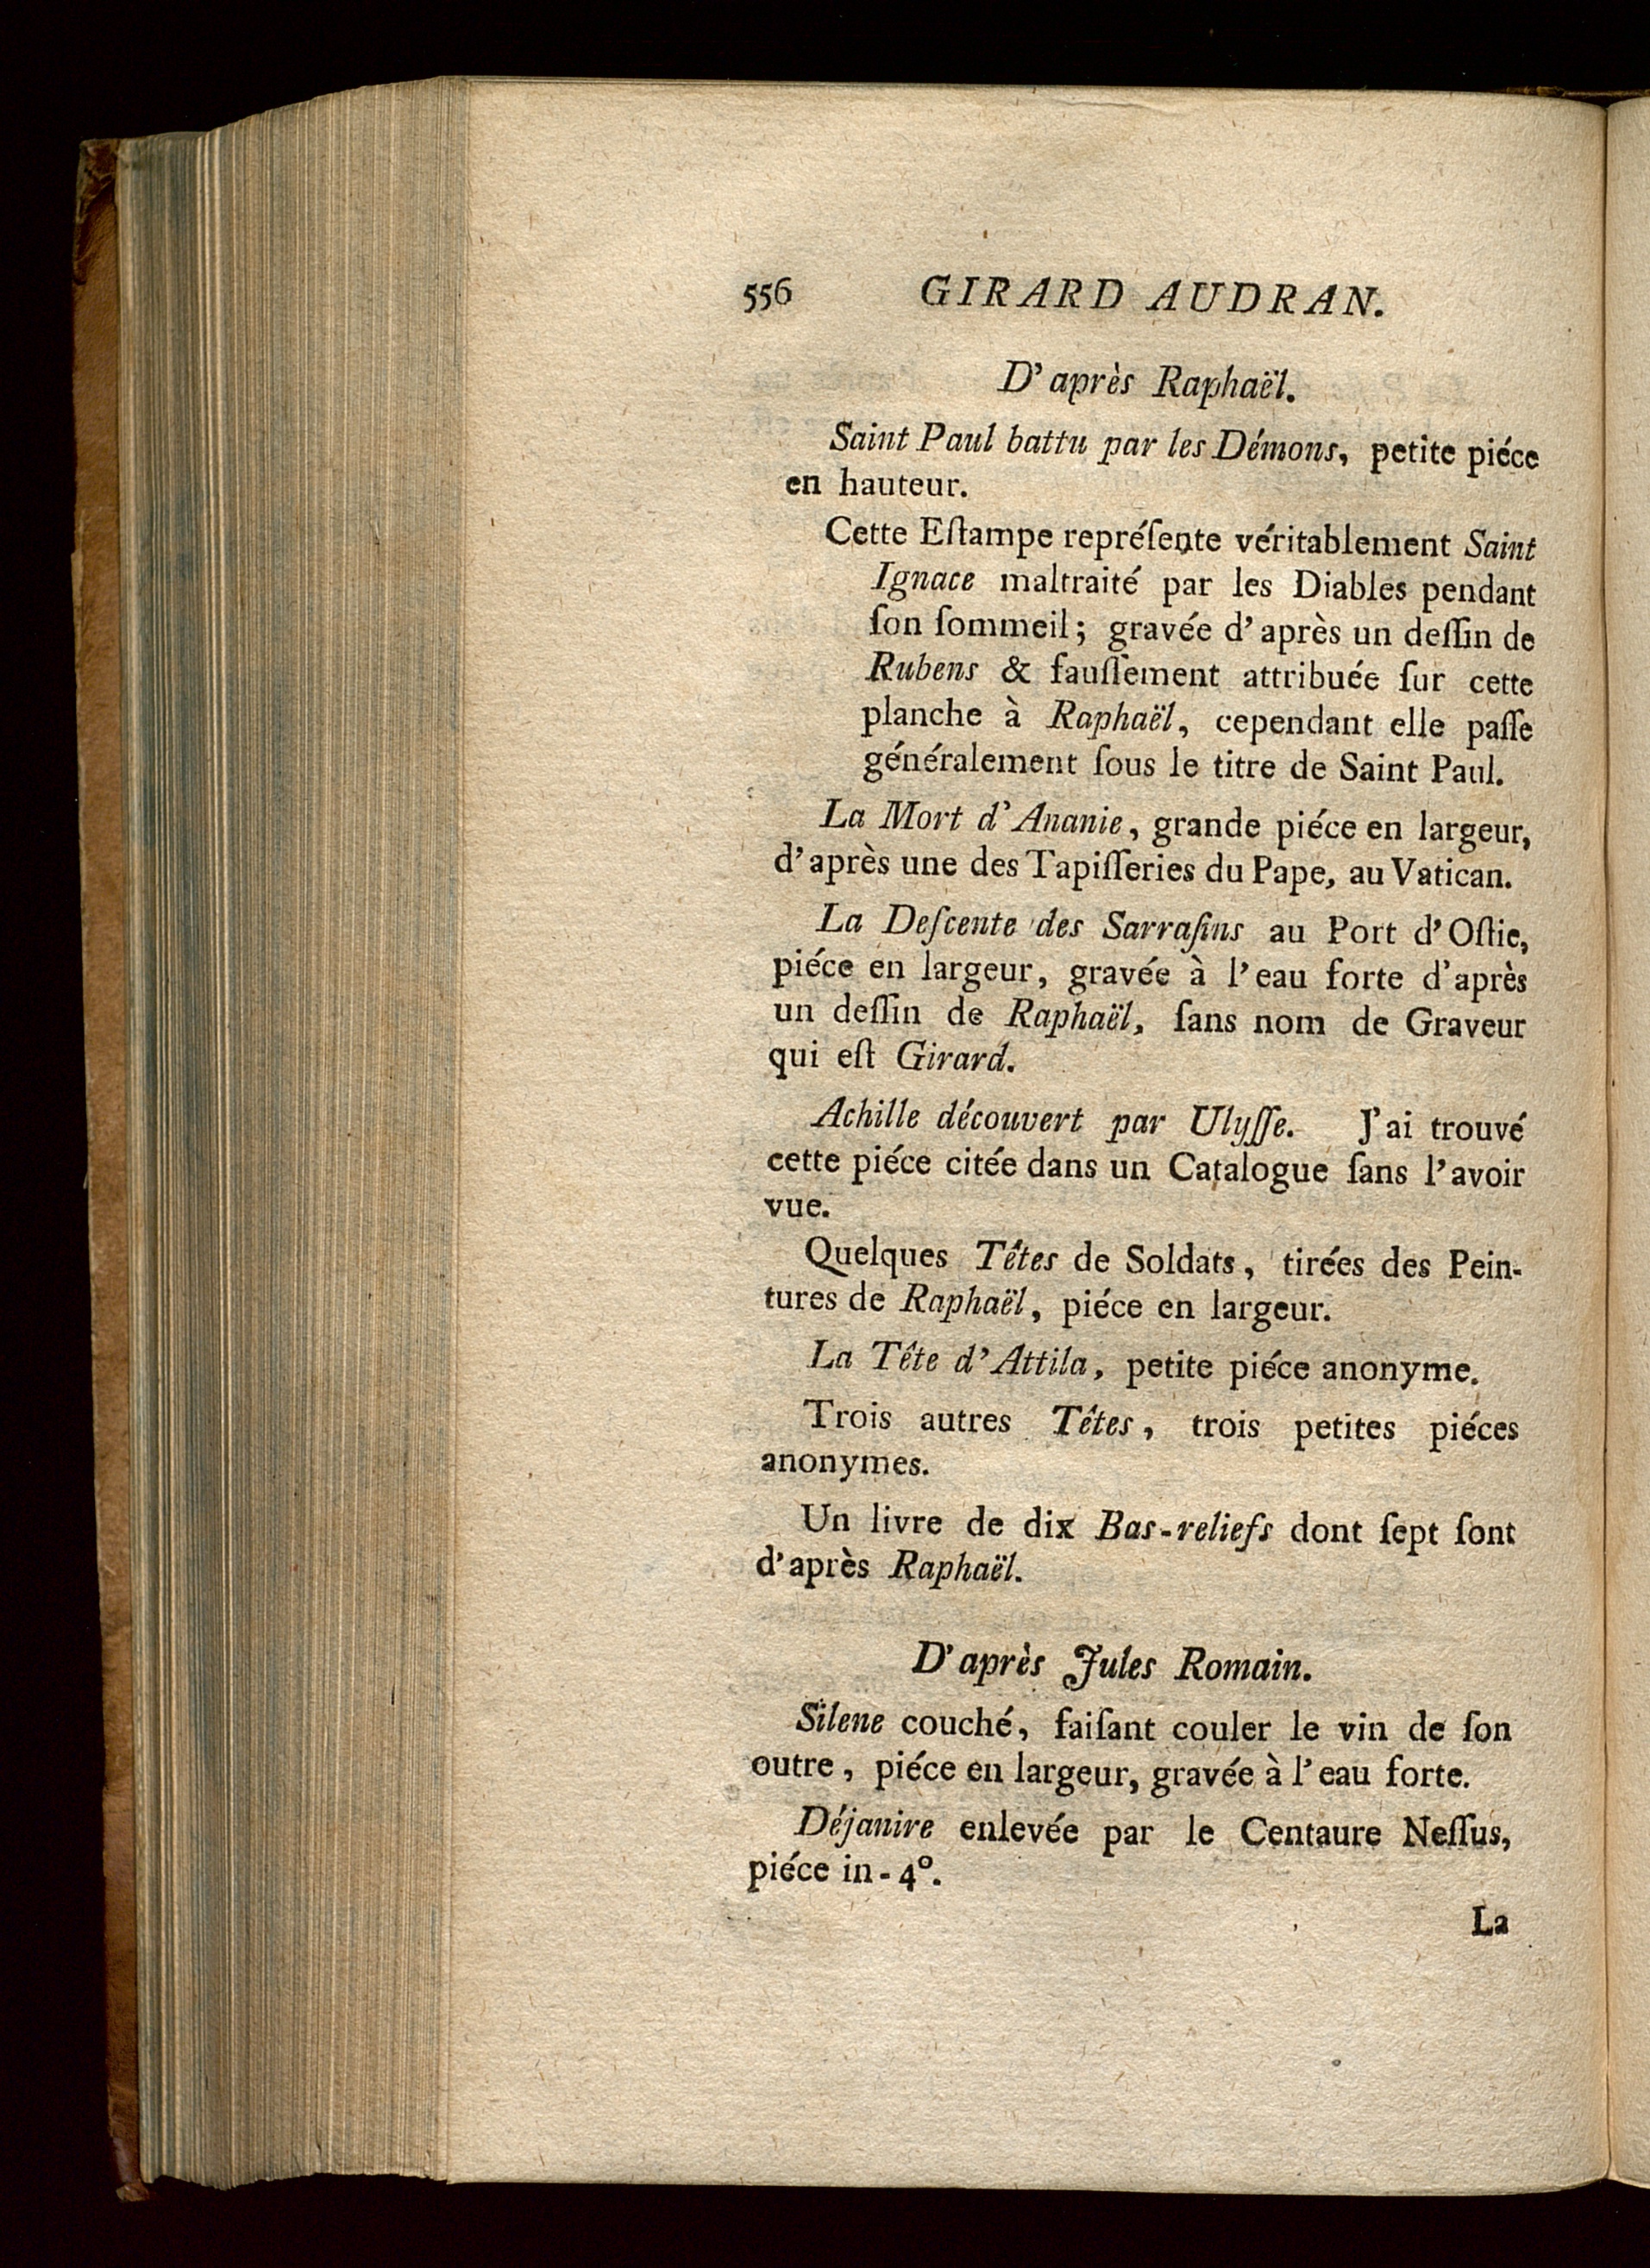 556 GIRARD AUDRAN.
D'après Raphaël.
Saint Paul battu par les Démons, petite piéce
en hauteur.
Cette Eſtampe repréſente véritablement Saint
Ignace maltraité par les Diables pendant
ſon ſommeil; gravée d'après un deſſin de
Rubens & fauſſement attribuée ſur cette
planche à Raphaël, cependant elle paſſe
généralement ſous le titre de Saint Paul.
La Mort d'Ananie, grande piéce en largeur,
d'après une des Tapiſſeries du Pape, au Vatican.
La Deſcente des Sarraſins au Port d'Oſtie,
piéce en largeur, gravée à l'eau forte d'après
un deſſin de Raphaël, ſans nom de Graveur
qui eſt Girard.
Achille découvert par Ulyſſe. J'ai trouvé
cette piéce citée dans un Catalogue ſans l'avoir
vue.
Quelques Têtes de Soldats, tirées des Pein-
tures de Raphaël, piéce en largeur.
La Tête d'Attila, petite piéce anonyme.
Trois autres Têtes, trois petites piéces
anonymes.
Un livre de dix Bas-reliefs dont ſept ſont
d'après Raphaël.
D'après Jules Romain.
Silene couché, faiſant couler le vin de ſon
outre, piéce en largeur, gravée à l'eau forte.
Déjanire enlevée par le Centaure Neſſus,
piéce in-4°.
La